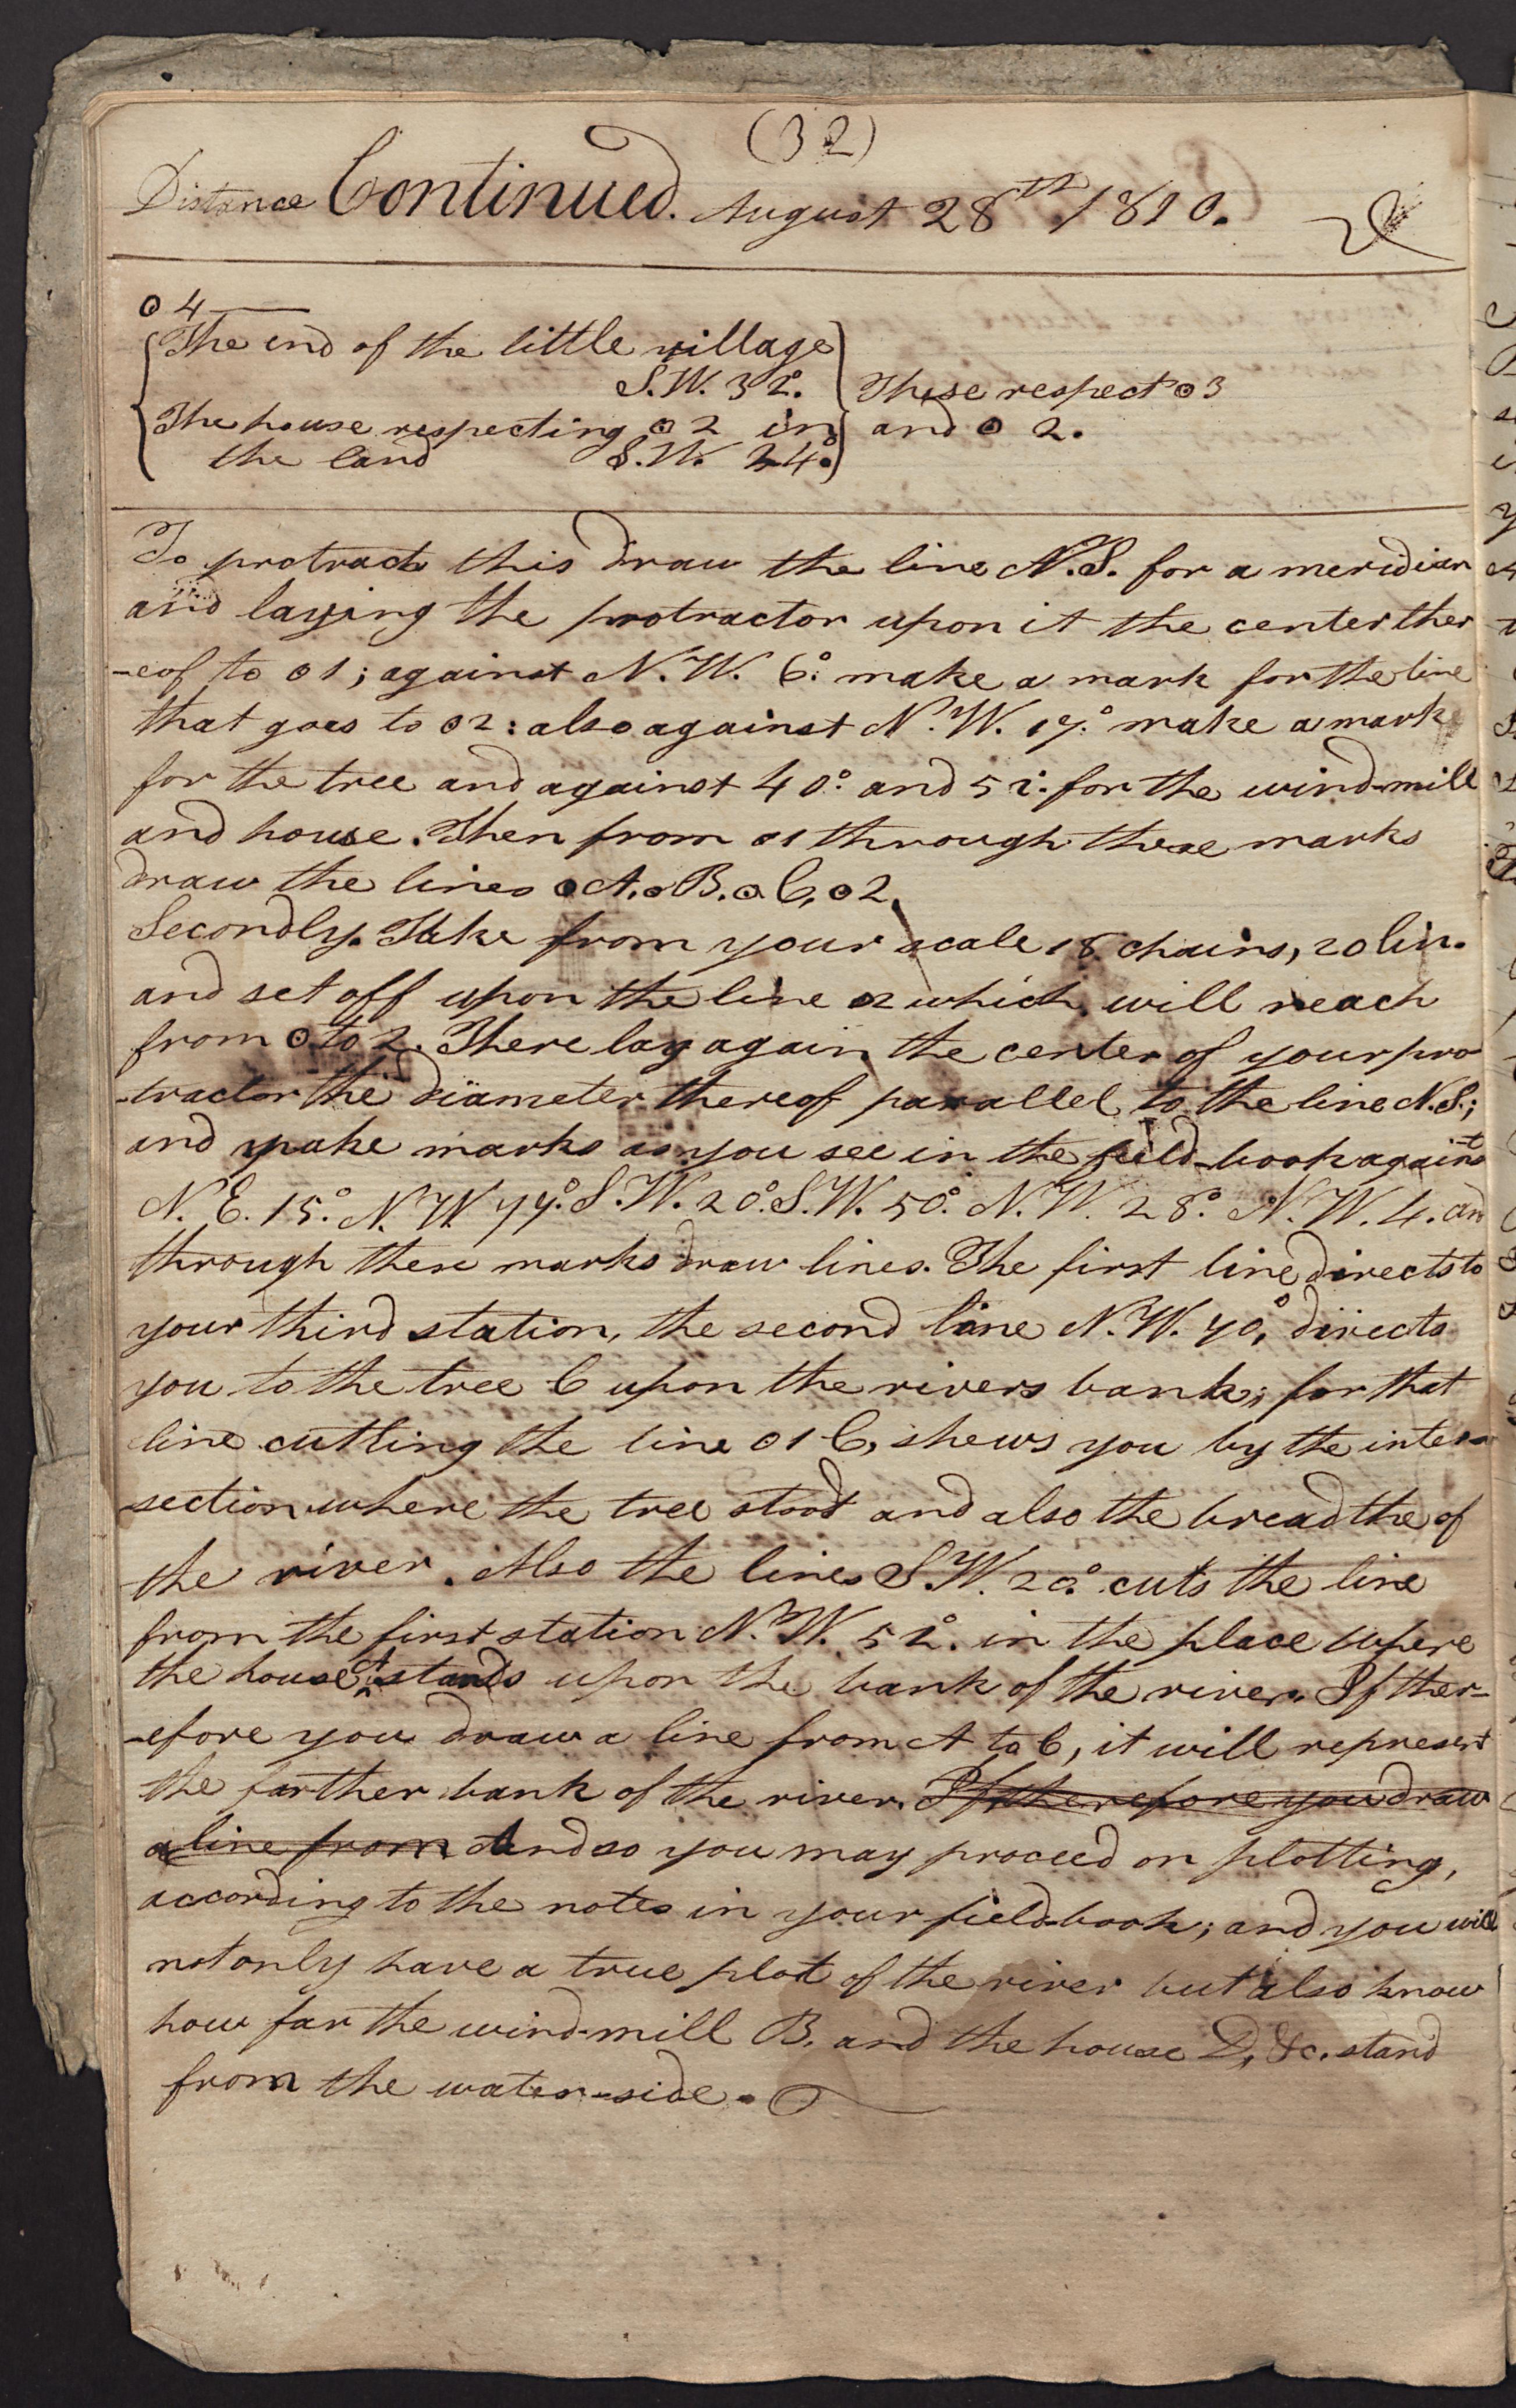 (32)
Distance Continued. August 28th 1810.
⊙ 4
The end of the little village
S.W. 32°. These respect ⊙ 3
The house respecting ⊙ 2 in and ⊙ 2.
the land S.W. 24°.
To protract this draw the line N.S. for a meridian
and laying the protractor upon it the center ther
-eof to ⊙1; against N.W. 6°. make a mark for the line
that goes to ⊙2: also against N.W. 17.° make a mark
for the tree and against 40°. and 52°. for the wind-mill
and house. Then from ⊙1 through these marks
draw the lines ⊙A.⊙B.⊙C,⊙2.
Secondly. Take from your scale 18 chains, 20 lin.
and set off upon the line ⊙2 which will reach
from ⊙ to 2. There lay again the center of your pro
-tractor the diameter thereof parallel to the line N.S.;
and make marks as you see in the field-book against
N.E. 15°. N.W. 77°. S.W. 20°. S.W. 50°. N.W. 28°. N.W. 4. an
through these marks draw lines. The first line directs to
your third station, the second line N.W. 70°, directs
you to the tree C upon the rivers bank; for that
line cutting the line ⊙1 C, shews you by the inter-
section where the tree stood and also the breadthe of
the river. Also the line S.W. 20°. cuts the line
from the first station N.W. 52°. in the place where
the house A stands upon the bank of the river. If ther-
-efore you draw a line from A to C, it will represent
the farther bank of the river. If therefore you draw
a line from And so you may proceed on plotting,
according to the notes in your field-book; and you will
not only have a true plot of the river but also know
how far the wind-mill B. and the house D, &c. stand
from the water-side.